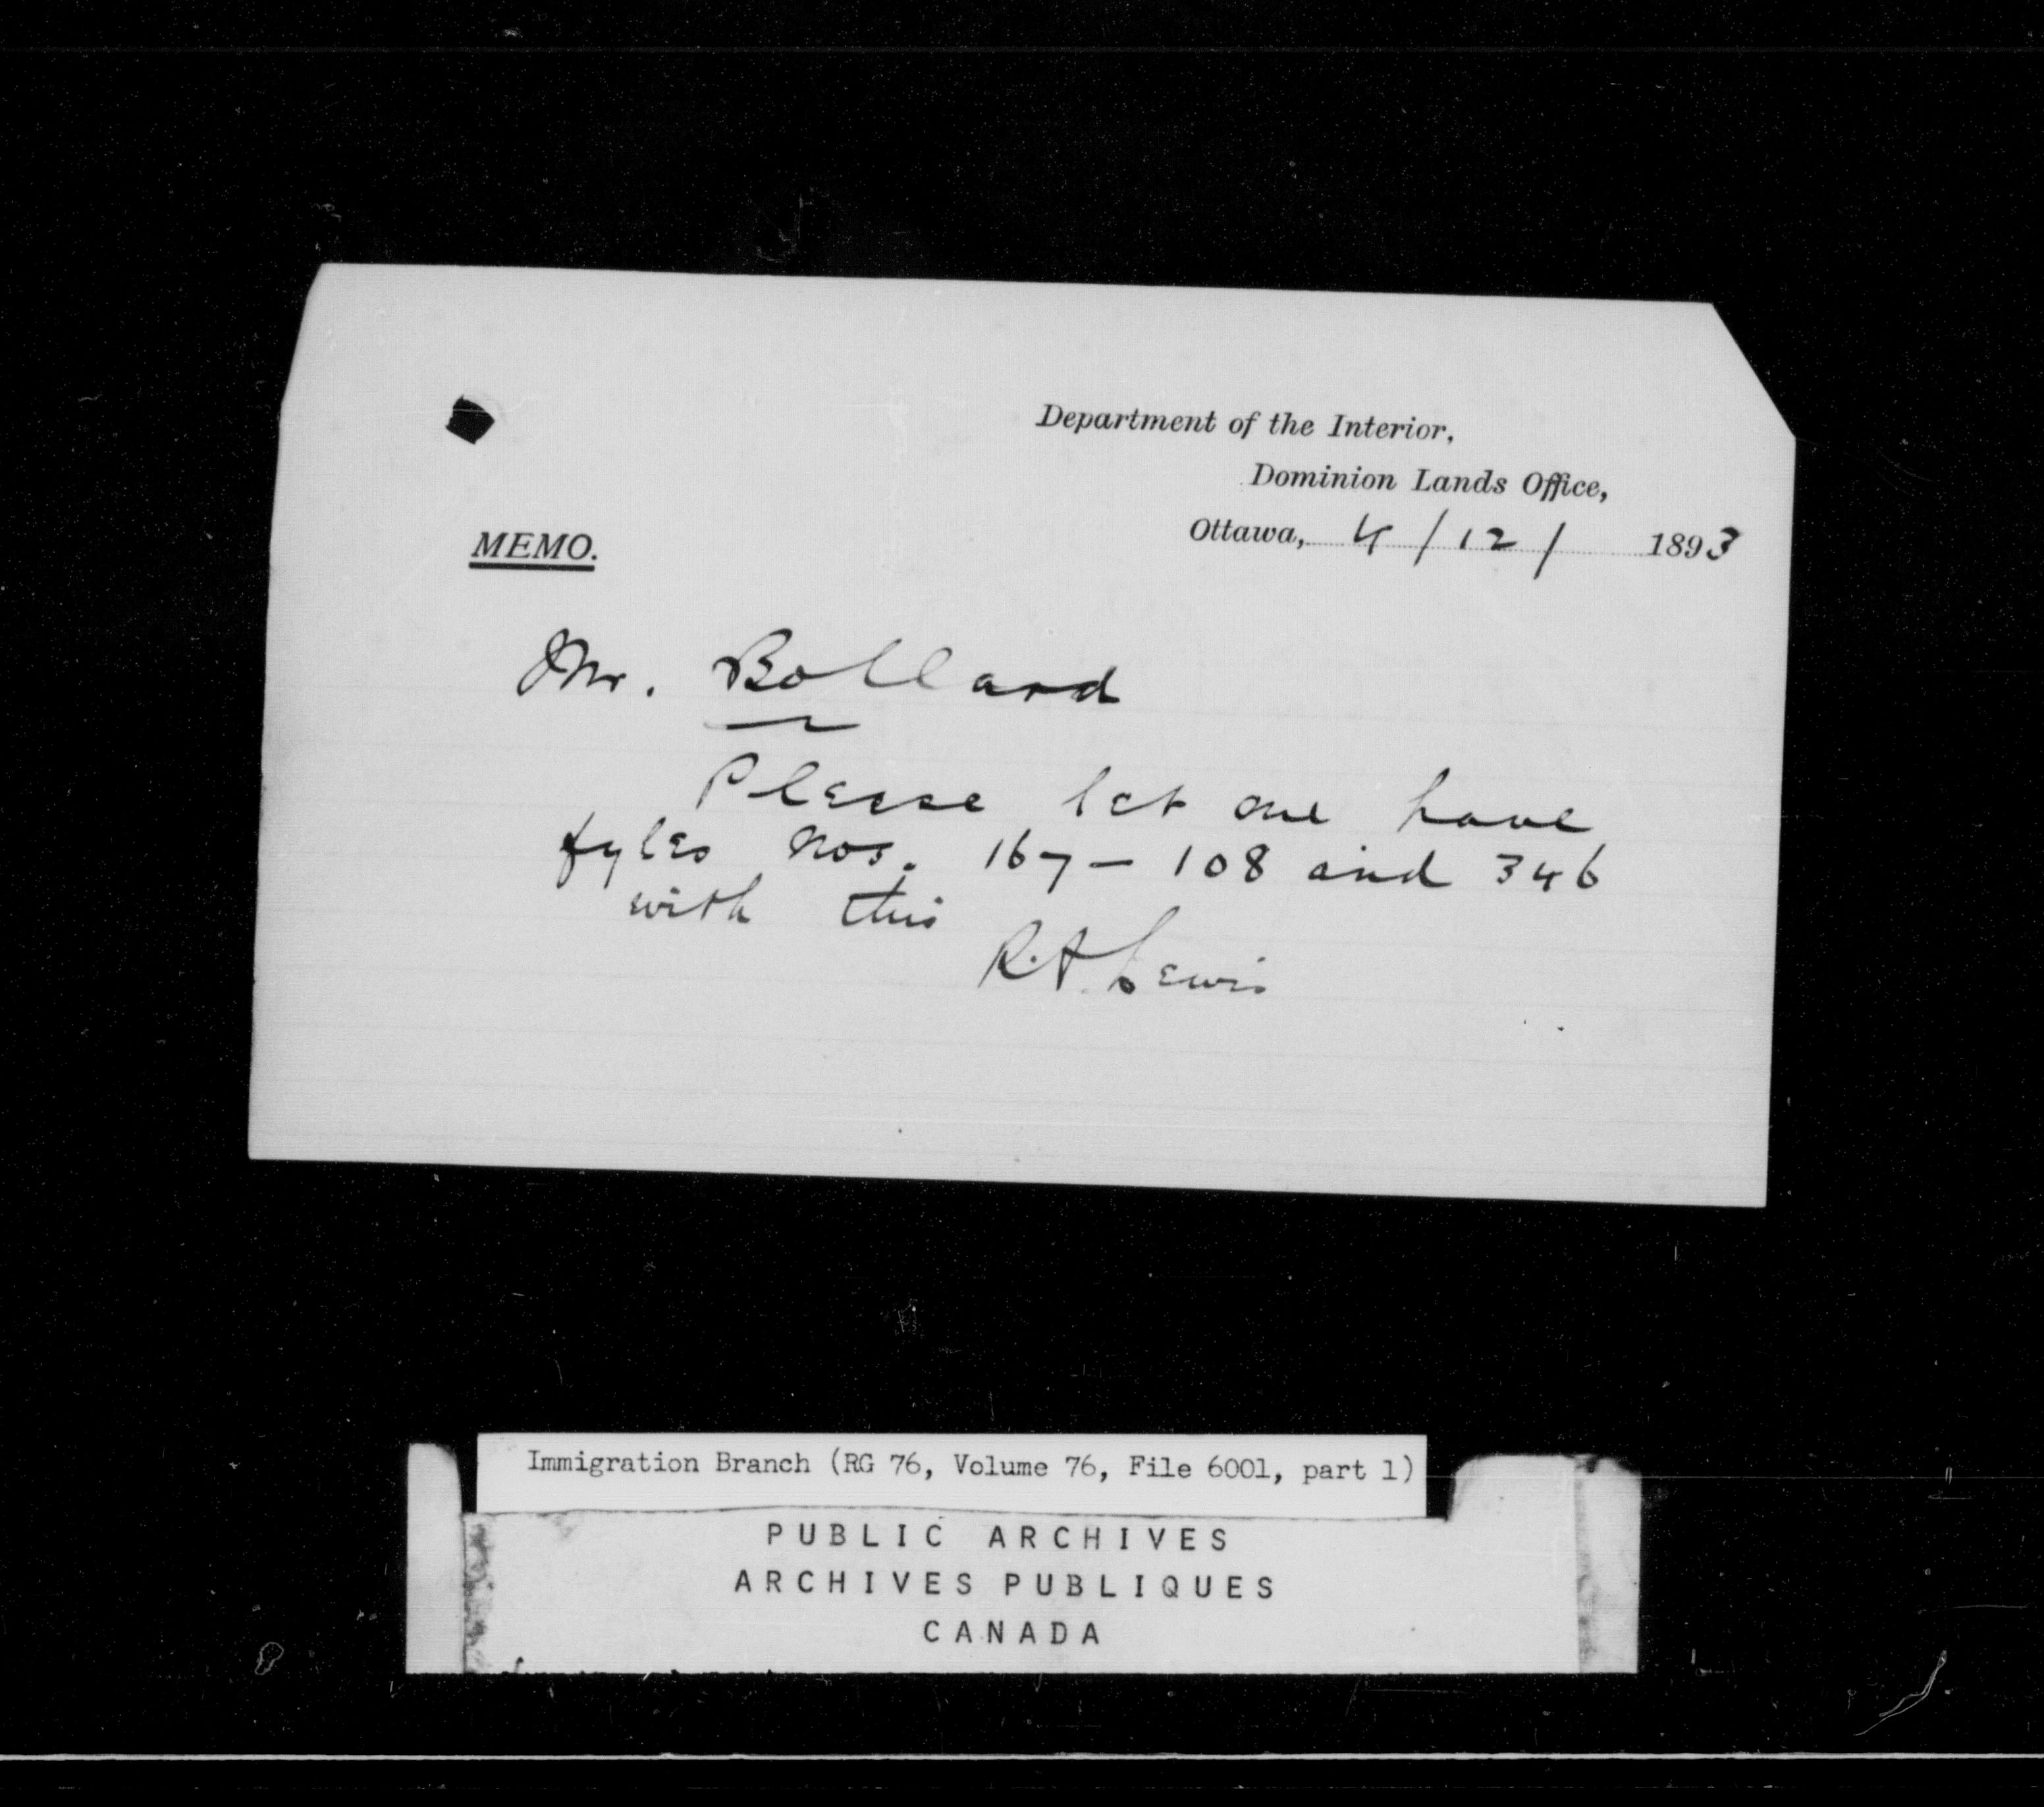 Department of the Interior,
Dominion Lands Office,
Ottawa, 4/12/ 1893
MEMO.
Mr. Bollard
Please let me have
fyles Nos. 167 – 108 and 346
with this
R.A. Lewis
Immigration Branch (RG 76, Volume 76, File 6001, part 1)
PUBLIC ARCHIVES
ARCHIVES PUBLIQUES
CANADA